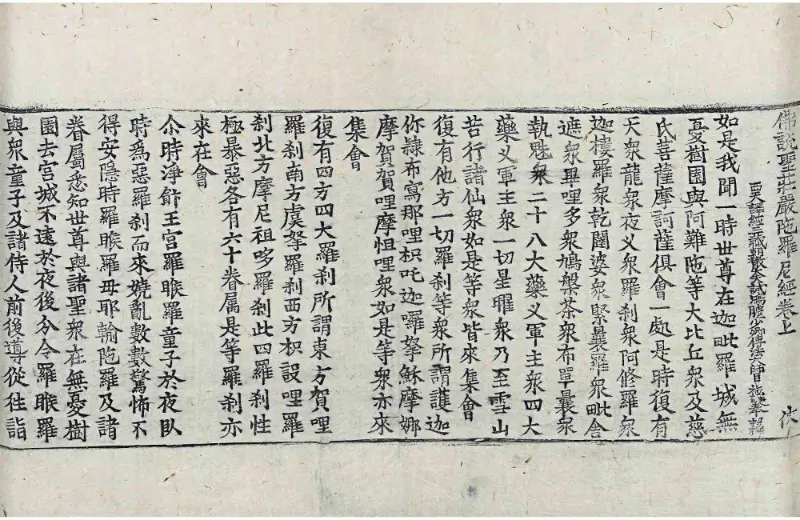 佛說聖莊嚴陁羅尼經卷上　伏
西天譯經三藏朝奉大夫試鴻臚少卿傳法大師臣施護奉 詔譯
如是我聞一時世尊在迦毗羅城無
憂樹園與阿難陁等大比丘衆及慈
氏菩薩摩訶薩俱會一處是時復有
天衆龍衆夜叉衆羅刹衆阿修羅衆
迦樓羅衆乾闥婆衆緊曩羅衆毗舍
遮衆畢哩多衆鳩槃茶衆布單曩衆
執魅衆二十八大藥叉軍主衆四大
藥叉軍主衆一切星曜衆乃至雪山
苦行諸仙衆如是等衆皆來集會
復有他方一切羅刹等衆所謂護迦
你隷布寫那哩枳吒迦囉拏穌摩娜
摩賀賀哩摩怛哩衆如是等衆亦來
集會
復有四方四大羅刹所謂東方賀哩
羅刹南方虞拏羅刹西方枳設哩羅
刹北方摩尼祖哆羅刹此四羅刹性
極暴惡各有六十眷属是等羅刹亦
來在會
尒時淨飰王宮羅睺羅童子於夜卧
時爲惡羅刹而來嬈亂數數驚怖不
得安隱時羅睺羅母耶輸陁羅及諸
眷屬悉知世尊與諸聖衆在無憂樹
園去宮城不遠於夜後分令羅睺羅
與衆童子及諸侍人前後導從往詣